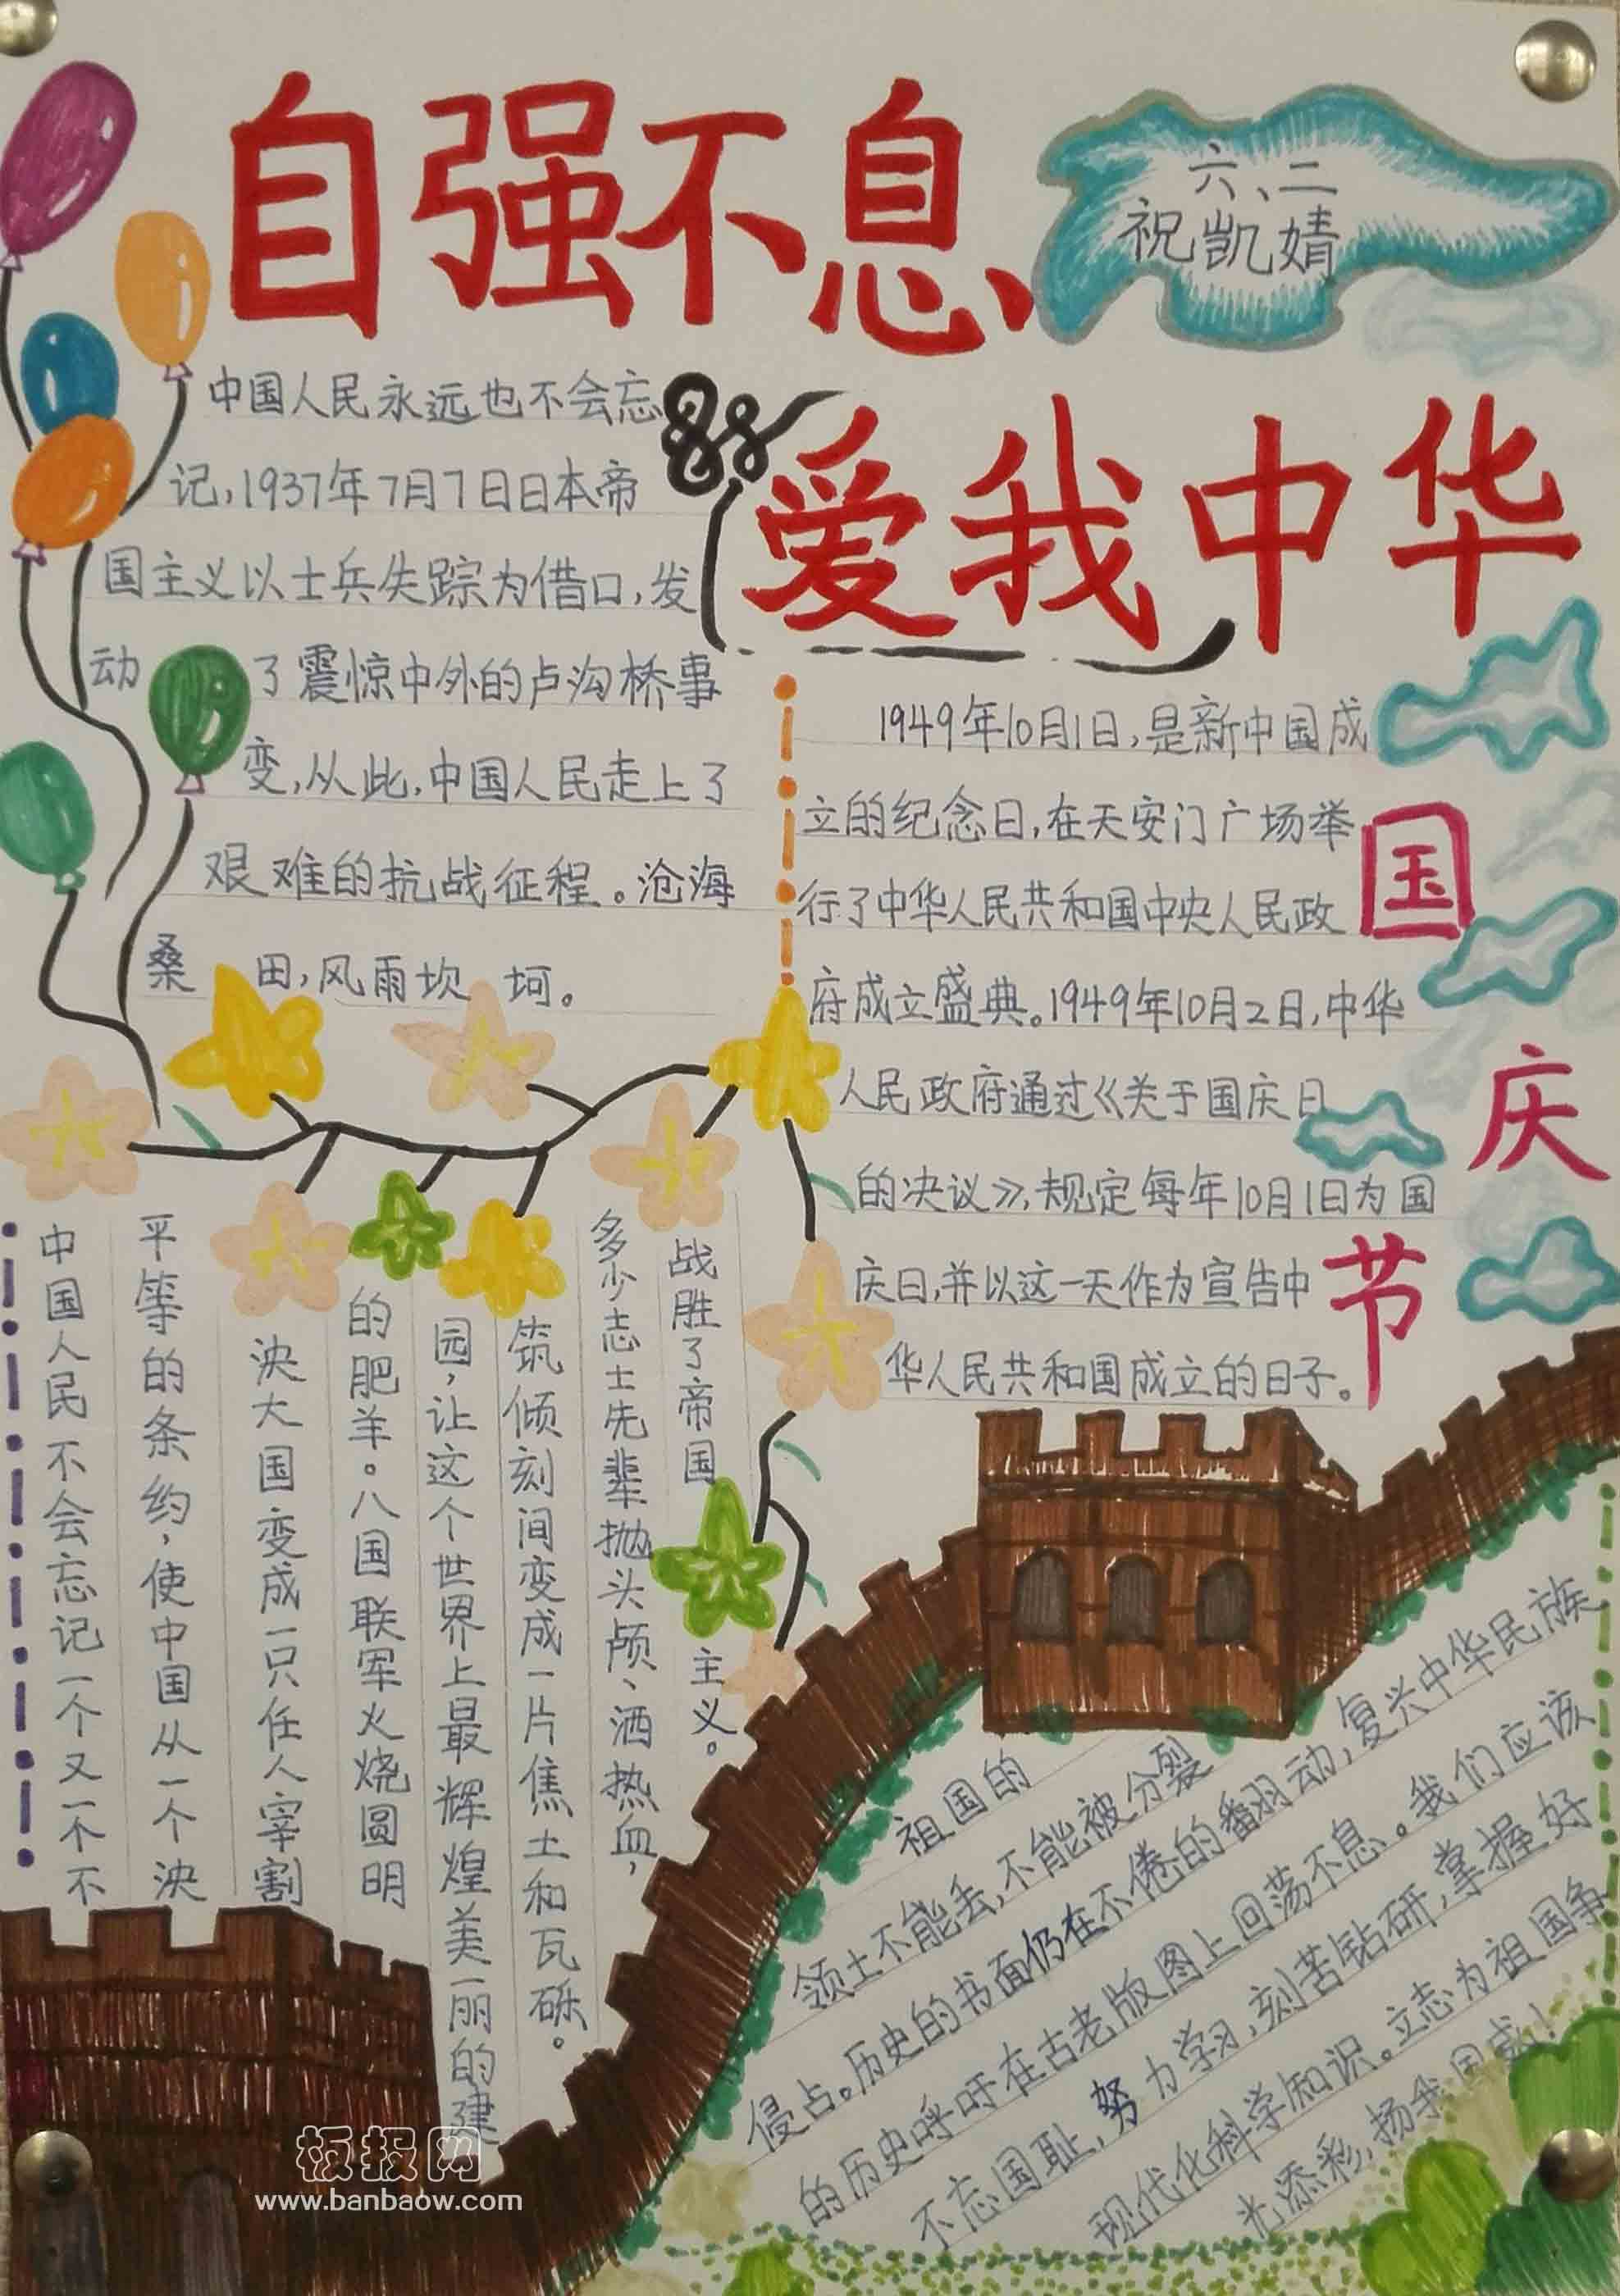 自强不息
六、二
祝凯婧
爱我中华
中国人民永远也不会忘
记,1937年7月7日日本帝
国主义以士兵失踪为借口,发
动了震惊中外的卢沟桥事
变,从此,中国人民走上了
艰难的抗战征程。沧海
桑田,风雨坎坷。
国庆节
1949年10月1日,是新中国成
立的纪念日,在天安门广场举
行了中华人民共和国中央人民政
府成立盛典。1949年10月2日,中华
人民政府通过《关于国庆日
的决议》,规定每年10月1日为国
庆日,并以这一天作为宣告中
华人民共和国成立的日子。
中国人民不会忘记一个又一个不
平等的条约,使中国从一个泱
泱大国变成一只任人宰割
的肥羊。八国联军火烧圆明
园,让这个世界上最辉煌美丽的建
筑倾刻间变成一片焦土和瓦砾。
多少志士先辈抛头颅、洒热血,
战胜了帝国主义。
祖国的
领土不能丢,不能被分裂
侵占。历史的书面仍在不倦的翻动,复兴中华民族
的历史呼吁在古老版图上回荡不息。我们应该
不忘国耻,努力学习,刻苦钻研,掌握好
现代化科学知识。立志为祖国争
光添彩,扬我国威!
板报网
www.banbaow.com